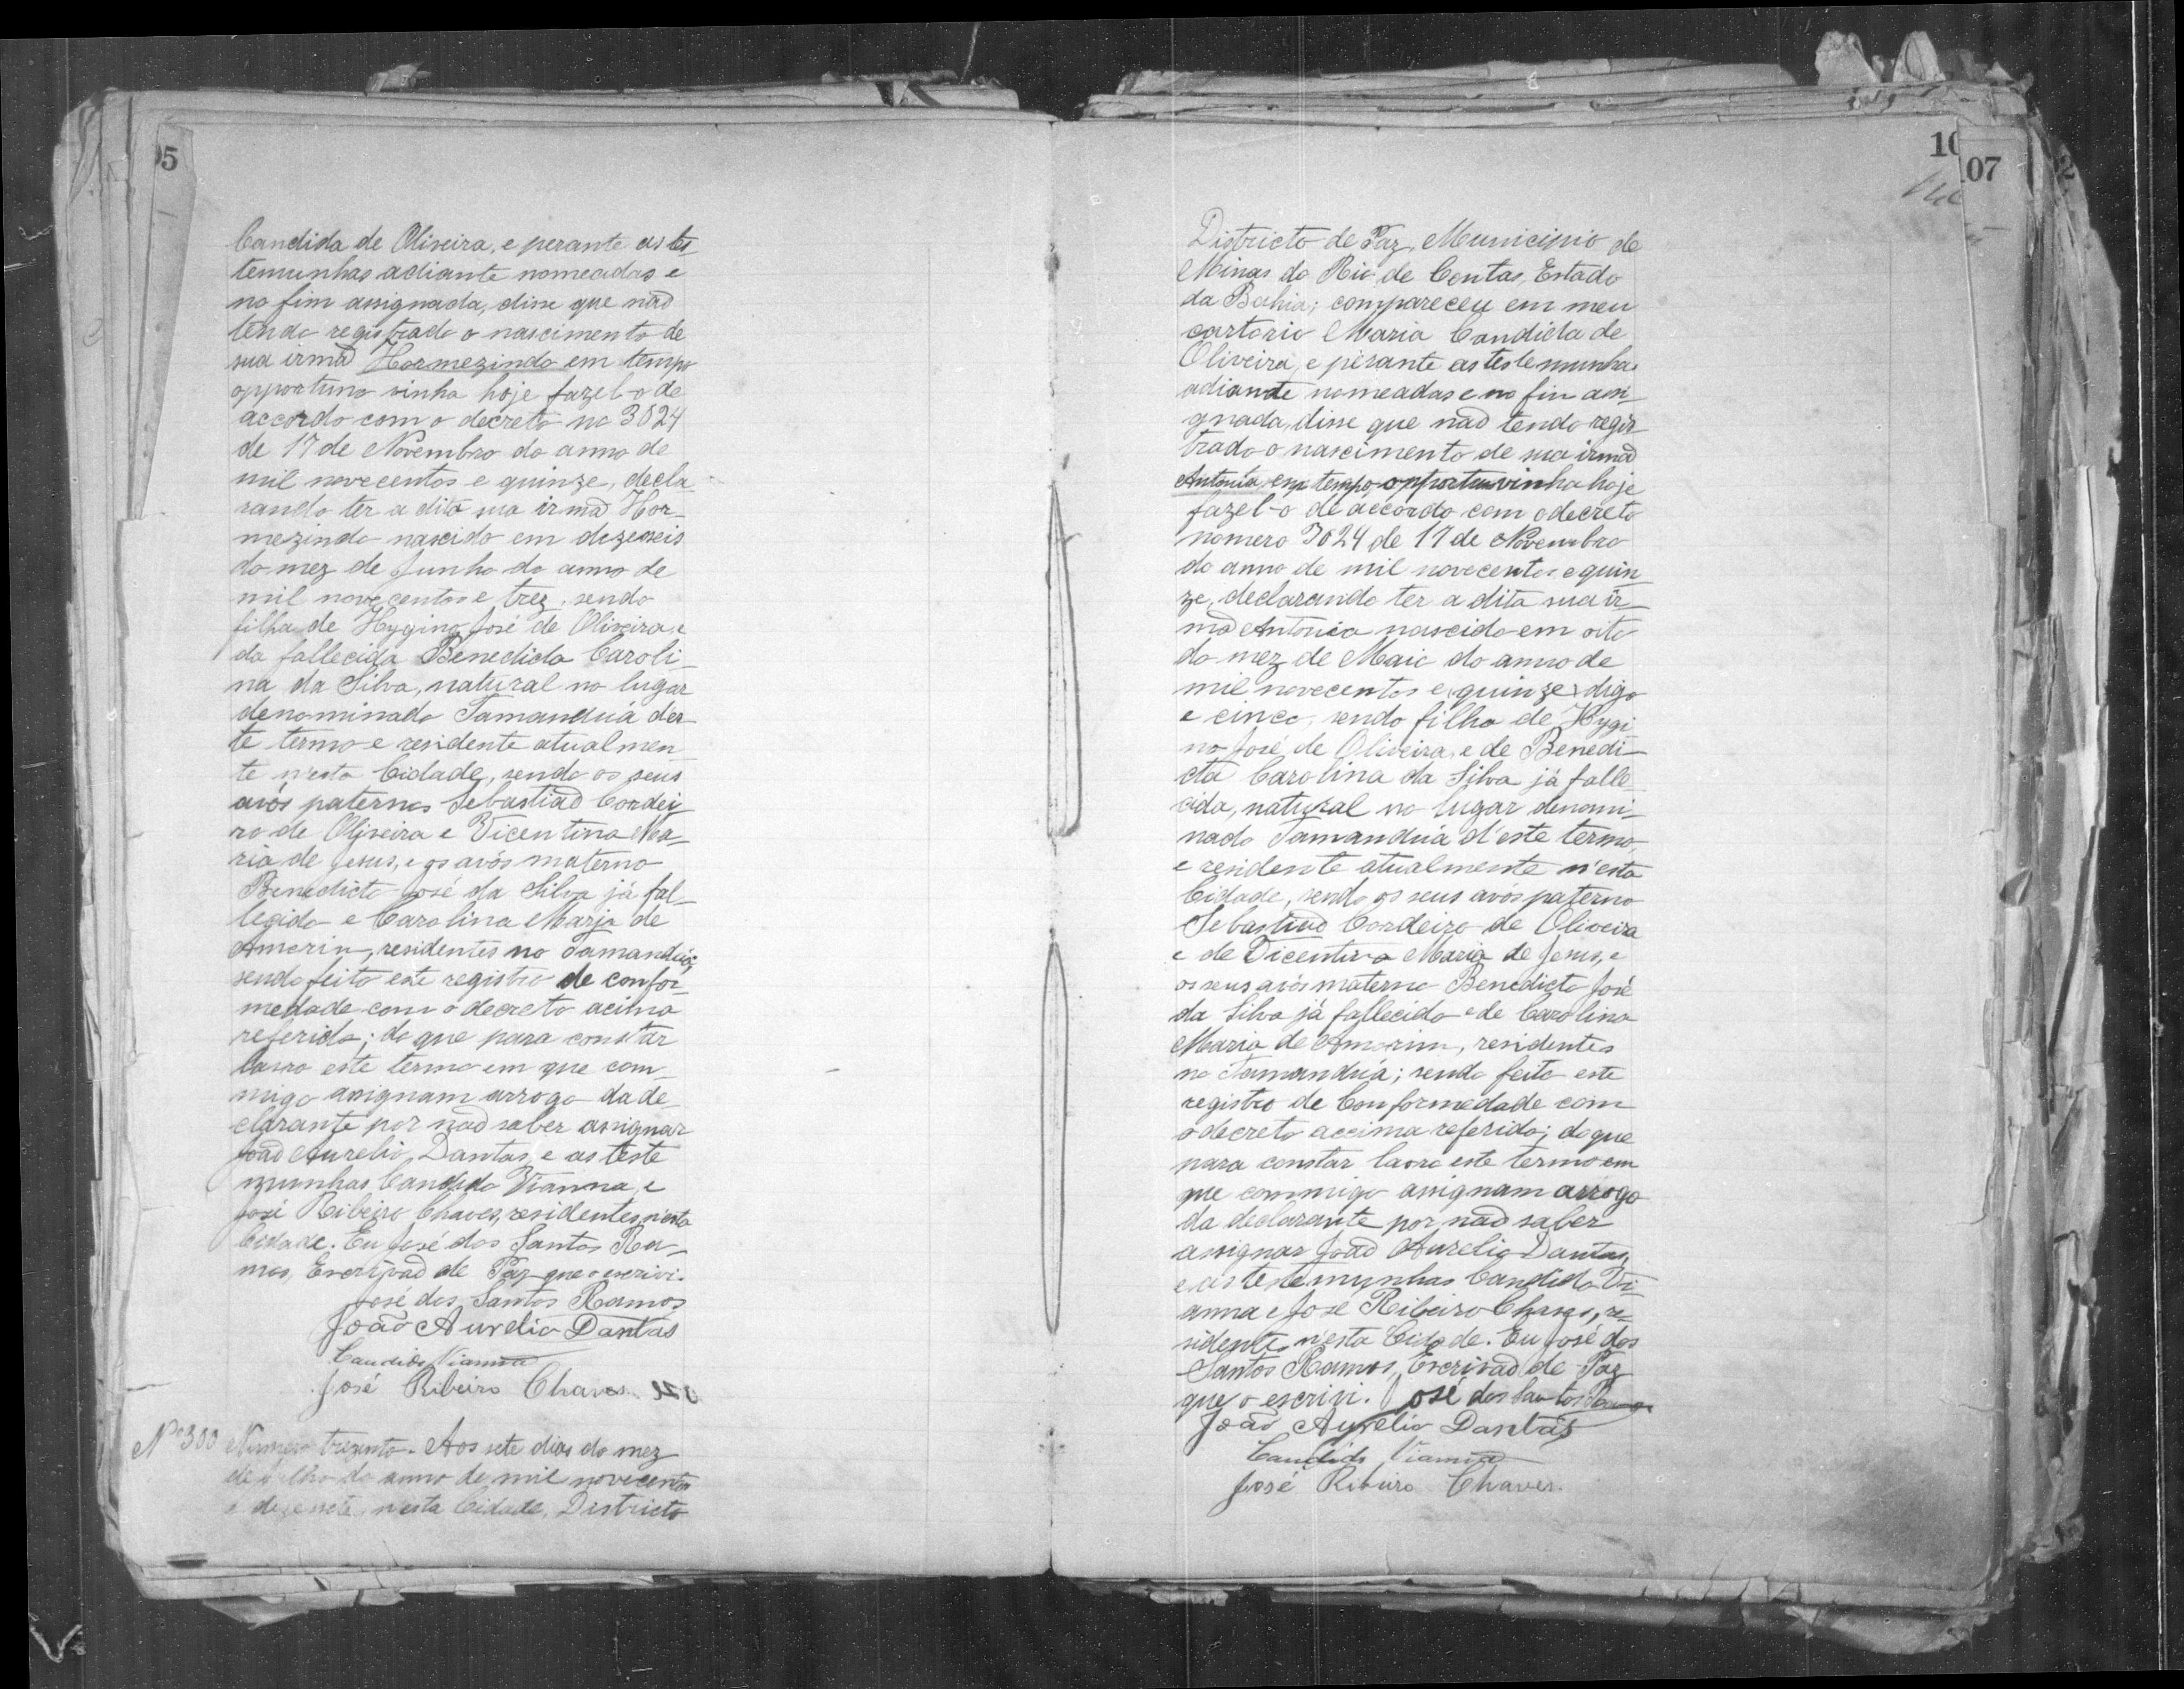 95
Candida de Oliveira, e perante as tes
temunhas adiante nomeadas e
no fim assignada, disse que não
tendo registrado o nascimento de
sua irmã Hormezinda em tempo
opportuno vinha hoje fazel-o de
accordo com o decreto no 3024
de 17 de Novembro do anno de
mil novecentos e quinze, decla
rando ter a dita sua irmã Hor-
mezinda nascido em dezeseis
do mez de Junho do anno de
mil novecentos e trez, sendo
filha de Hygino José de Oliveira, e
da fallecida Benedicta Caroli-
na da Silva, natural no lugar
denominado Tamanduá des
te termo e residente atualmen
te n'esta Cidade, sendo os seus
avós paternos Sebastião Cordei
ro de Oliveira e Vicentina Ma-
ria de Jesus, e os avós materno
Benedicto José da Silva já fal-
lecido e Carolina Maria de
Amorin, residentes no Tamanduá,
sendo feito este registro de confor-
medade com o decreto acima
referido; do que para constar
lavro este termo em que com-
migo assignam arrogo da de-
clarante por não saber assignar
João Aurelio Dantas, e as teste
munhas Candido Vianna, e
José Ribeiro Chaves, residentes n'esta
Cidade. Eu José dos Santos Ra-
mos, Escrivão de Paz que o escrivi.
José dos Santos Ramos
João Aurelio Dantas
Candido Vianna
José Ribeiro Chaves
Nº 300 Numero trezento. Aos sete dias do mez
de Julho do anno de mil novecentos
e dezesete, n'esta Cidade, Districto
10
107
Districto de Paz, Municipio de
Minas do Rio de Contas, Estado
da Bahia; compareceu em meu
cartorio Maria Candida de
Oliveira, e perante as testemunhas
adiante nomeadas e no fim assi-
gnada, disse que não tendo regis
trado o nascimento de sua irmã
Antonia, em tempo opportu vinha hoje
fazel-o de accordo com o decreto
nomero 3024 de 17 de Novembro
do anno de mil novecentos e quin
ze, declarando ter a dita sua ir-
mã Antonia nascido em oito
do mez de Maio do anno de
mil novecentos e (quinze) digo
e cinco, sendo filha de Hygi
no José de Oliveira, e de Benedi-
cta Carolina da Silva já falle
cida, natural no lugar denomi-
nado Tamanduá d'este termo,
e residente atualmente n'esta
Cidade, sendo os seus avós paterno
Sebastião Cordeiro de Oliveira
e de Vicentina Maria de Jesus, e
os seus avós materno Benedicto José
da Silva já fallecido e de Carolina
Maria de Amorim, residentes
no Tamanduá; sendo feito este
registro de Conformedade com
o decreto accima referido; do que
para constar lavro este termo em
que commigo assignam arrogo
da declarante por não saber
assignar João Aurelio Dantas,
e as testemunhas Candido Vi-
anna e José Ribeiro Chaves, re-
sidentes n'esta Cidade. Eu José dos
Santos Ramos, Escrivão de Paz
que o escrivi. José dos Santos Ramos
João Aurelio Dantas
Candido Vianna
José Ribeiro Chaves.